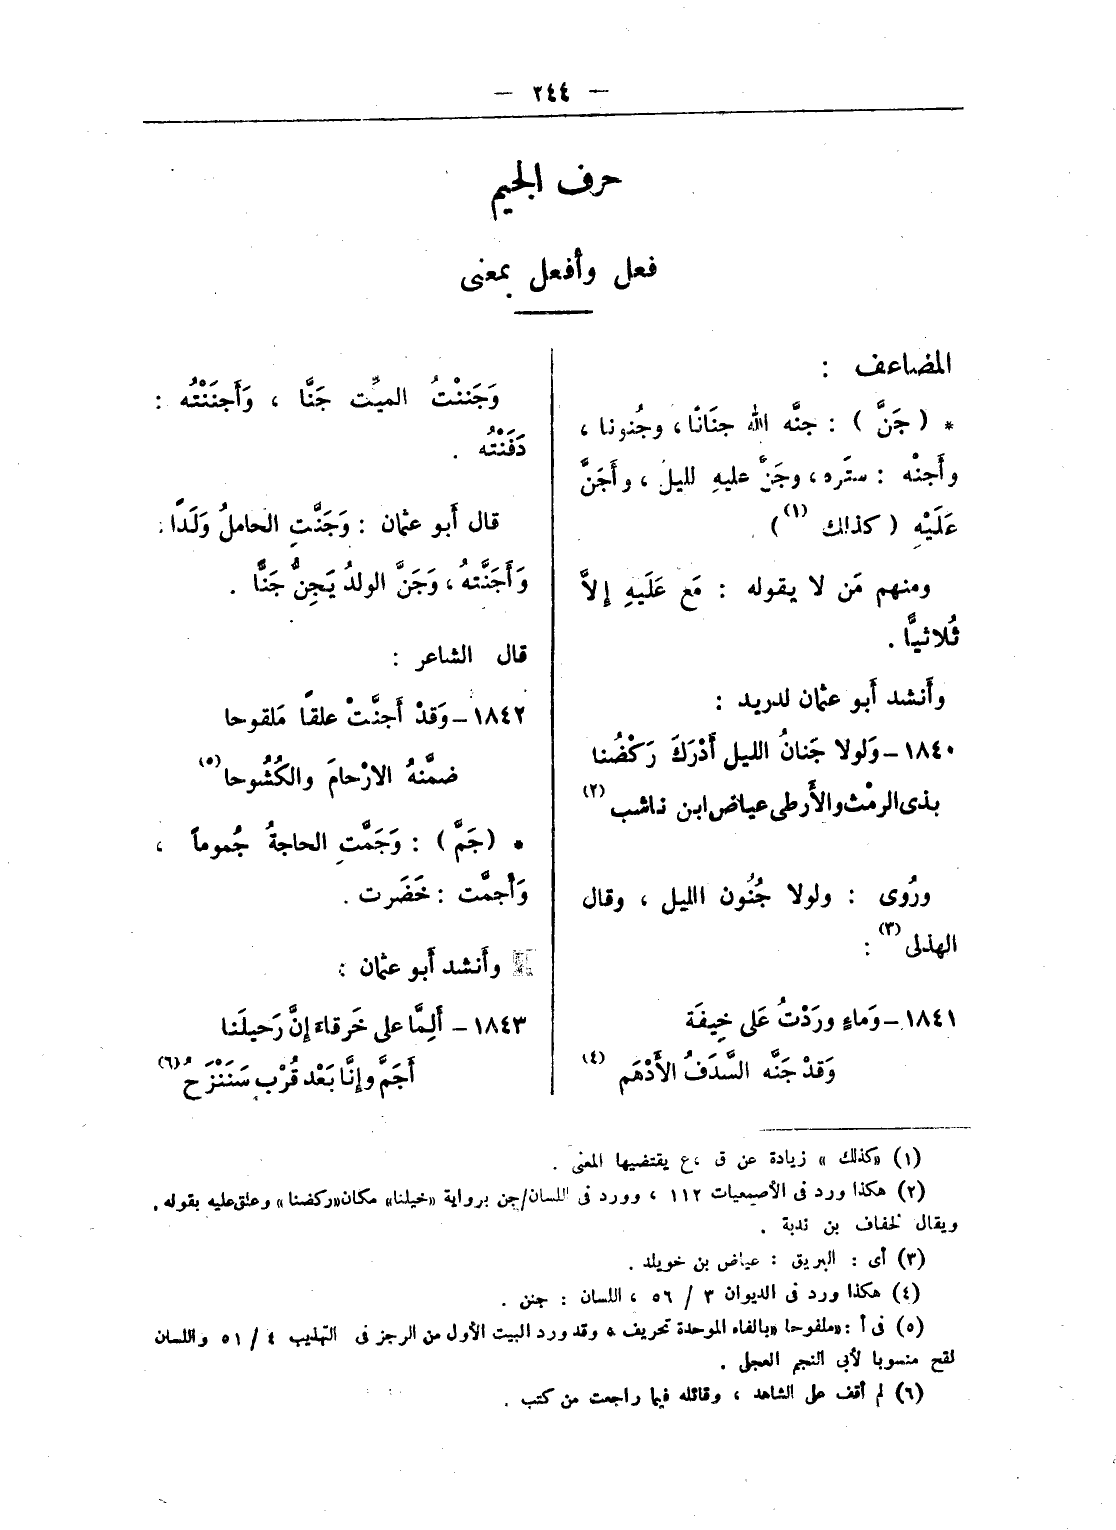 — ٢٤٤ —
حرف الجيم
فعل وأفعل بمعنى
المضاعف :
* ( جَنَّ ) : جنَّه الله جنَانًا ، وجُنونا ،
وأَجنْه : ستَره ، وجَنَّ عليهِ لليل ، وأَجَنَّ
عَلَيْهِ ( كذلك (١) )
ومنهم مَن لا يقوله : مَع عَلَيهِ إِلاَّ
ثُلاثيًّا .
وأَنشد أَبو عثمان لدريد :
١٨٤٠ – وَلولا جَنانُ الليل أَدْرَكَ رَكْضُنا
بذى الرمْث والأَرطى عياض ابن ناشب (٢)
ورُوى : ولولا جُنُون الليل ، وقال
الهذلى (٣) :
١٨٤١ – وَماءٍ ورَدْتُ عَلى خِيفَة
وَقدْ جَنَّه السَّدَفُ الأَدْهَم (٤)
وَجَننْتُ الميِّت جَنَّا ، وَأَجنَنْتُه :
دَفَنْتُه .
قال أَبو عثمان : وَجَنَّتِ الحاملُ وَلَدًا :
وَأَجَنَّتهُ ، وَجَنَّ الولدُ يَجِنُّ جَنًّا .
قال الشاعر :
١٨٤٢ – وَقدْ أَجنَّتْ علقًا مَلقوحا
ضمَّنهُ الارْحامَ والكُشُوحا (٥)
* ( جَمَّ ) : وَجَمَّتِ الحاجةُ جُموماً ،
وَأَجمَّت : حَضَرت .
وأَنشد أَبو عثمان :
١٨٤٣ – أَلِمَّا على خَرقاءَ إِنَّ رَحيلَنا
أَجَمَّ وإِنَّا بَعْد قُرْب سَنَنْزَحُ (٦)
(١) «كذلك » زيادة عن ق ،ع يقتضيها المعنى .
(٢) هكذا ورد فى الأصمعيات ١١٢ ، وورد فى اللسان/جن برواية «خيلنا» مكان«ركضنا» وعلق عليه بقوله .
ويقال لخفاف بن ندبة .
(٣) أى : البريق : عياض بن خويلد .
(٤) هكذا ورد فى الديوان ٣ / ٥٦ ، اللسان : جنن .
(٥) فى أ : «ملفوحا »بالفاء الموحدة تحريف ، وقد ورد البيت الأول من الرجز فى التهذيب ٤ / ٥١ واللسان
لقح منسوبا لأبى النجم العجلى .
(٦) لم أقف على الشاهد ، وقائله فيما راجعت من كتب .